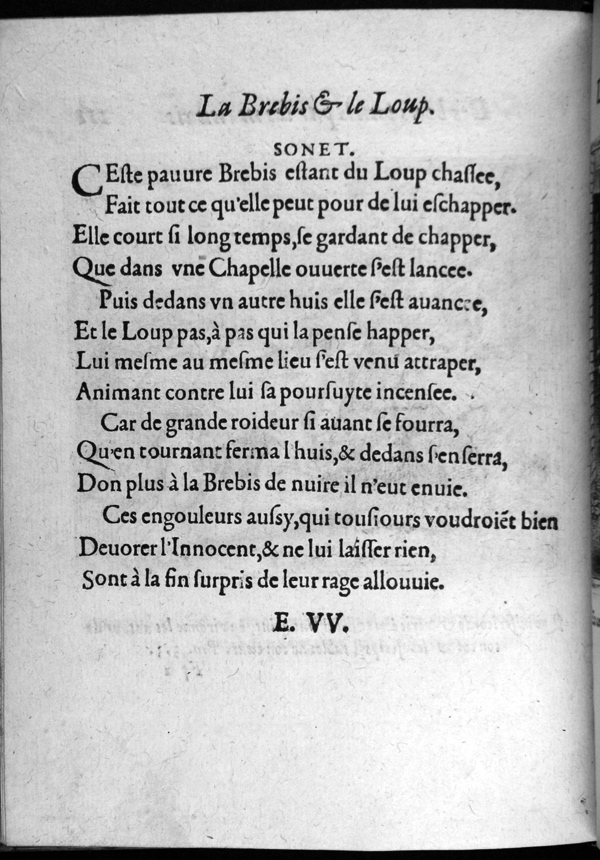 La Brebis & le Loup.
SONET.
CEſte pauure Brebis eſtant du Loup chaſſee,
Fait tout ce qu'elle peut pour de lui eſchapper.
Elle court ſi long temps, ſe gardant de chapper,
Que dans vne Chapelle ouuerte ſ'eſt lancee.
Puis dedans vn autre huis elle ſ'eſt auancee,
Et le Loup pas, à pas qui la penſe happer,
Lui meſme au meſme lieu ſ'eſt venu attraper,
Animant contre lui ſa pourſuyte incenſee.
Car de grande roideur ſi auant ſe fourra,
Qu'en tournant ferma l'huis, & dedans ſ'enſerra,
Don plus à la Brebis de nuire il n'eut enuie.
Ces engouleurs auſsy, qui touſiours voudroiẽt bien
Deuorer l'Innocent, & ne lui laiſſer rien,
Sont à la fin ſurpris de leur rage allouuie.
E. VV.